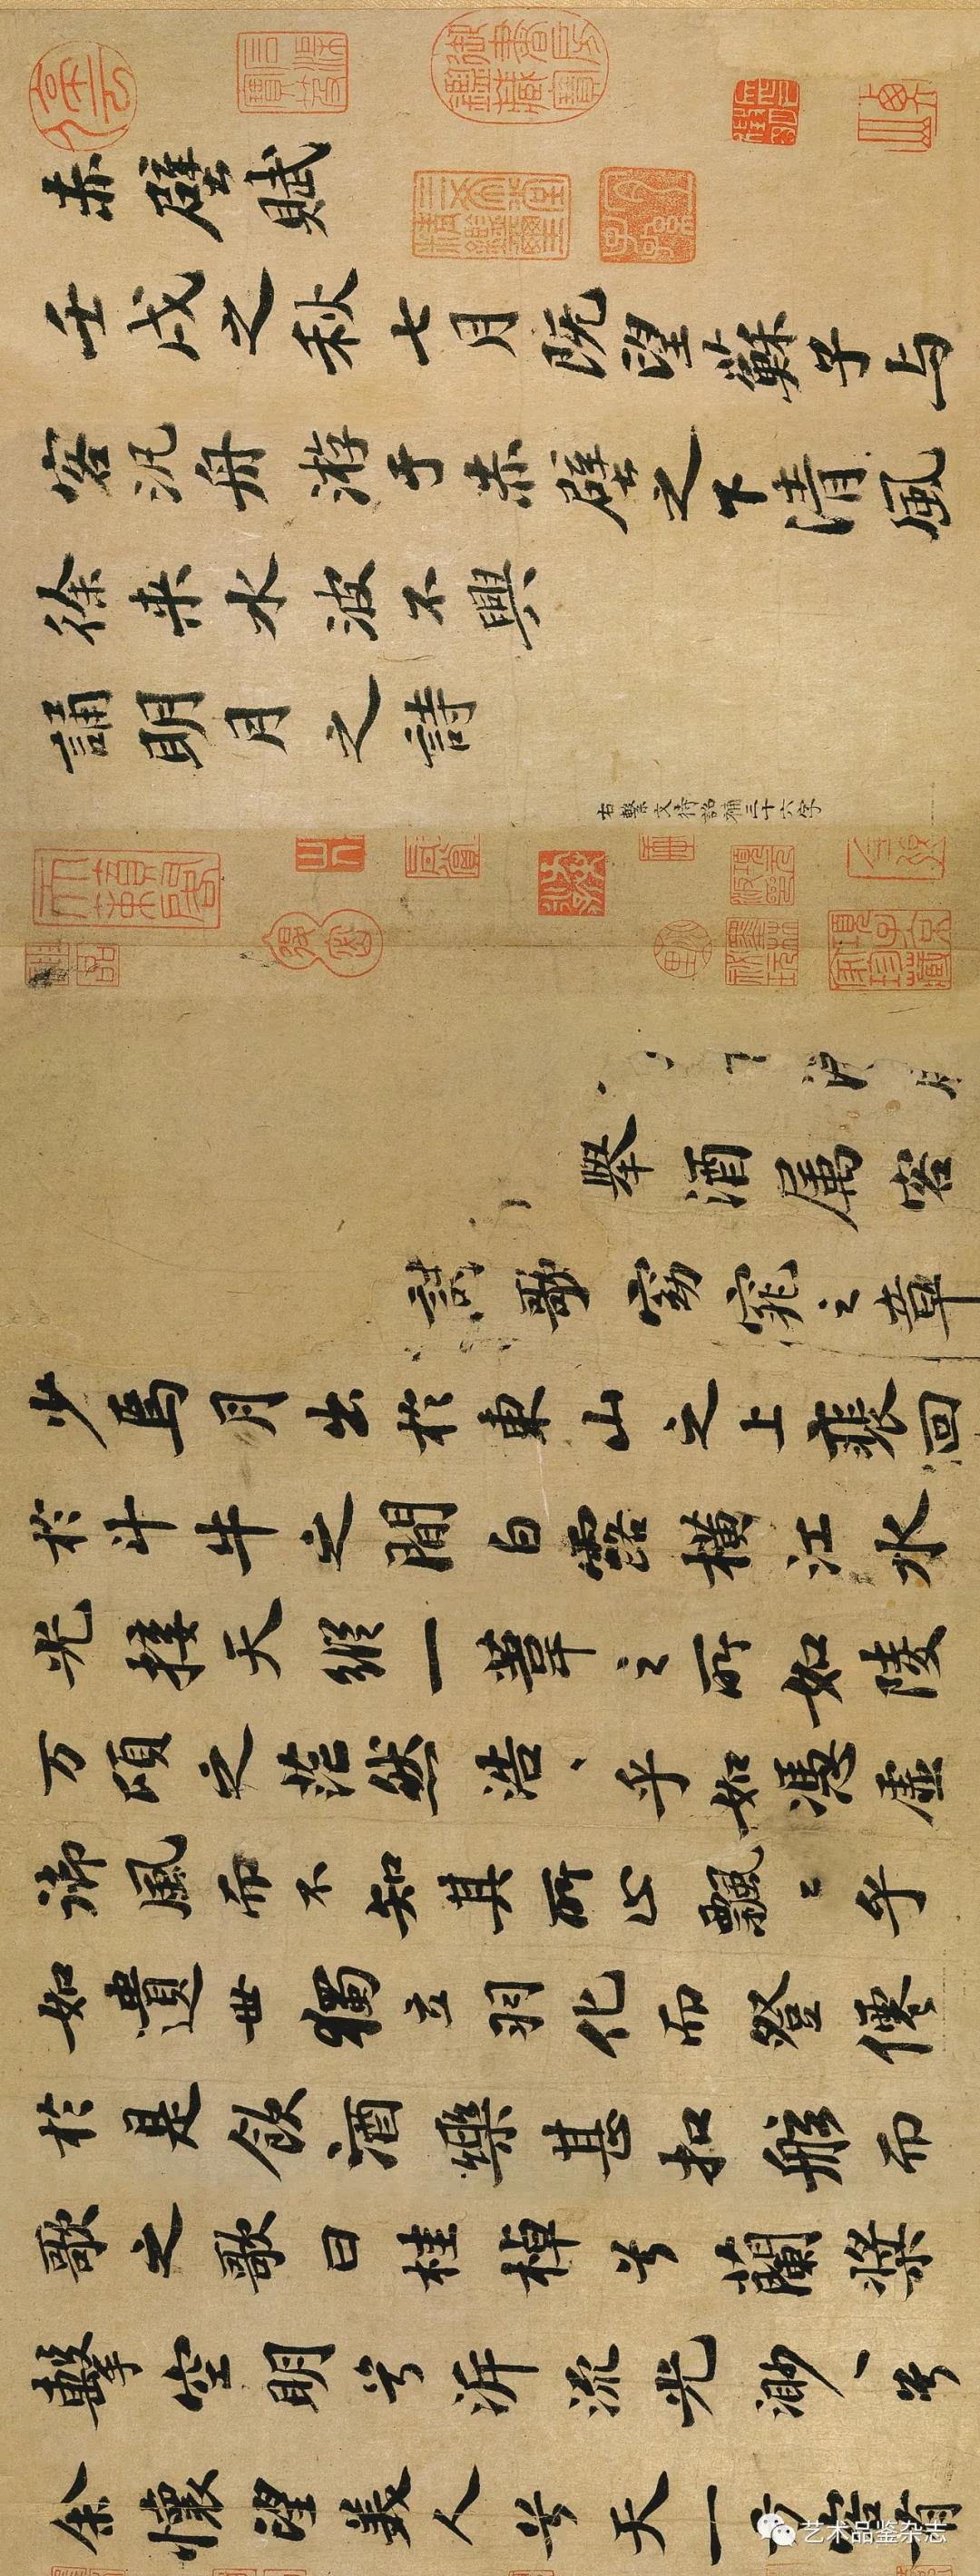 赤壁賦
壬戌之秋七月既望蘇子与
客汎舟游于赤壁之下清風
徐来水波不興
誦明月之詩
右繫文待詔補三十六字
舉酒属客
歌窈窕之章
少焉月出於東山之上裴回
於斗牛之間白露横江水
光接天縱一葦之所如陵
万頃之茫然浩、乎如馮虚
御風而不知其所止飄〻乎
如遺世獨立羽化而登僊
於是飲酒樂甚扣舷而
歌之歌曰桂棹兮蘭槳
擊空明兮泝流光渺、兮
余懷望美人兮天一方客有
艺术品鉴杂志